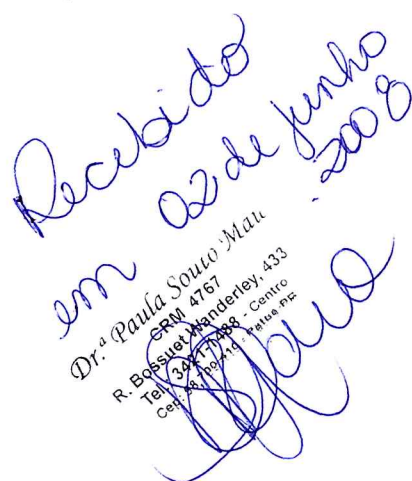 Recebido
em 02 de junho
2008
Dr.ª Paula Souto Mau
CRM 4767
R. Bossuet Wanderley, 433
Tel. 3421-1488 - Centro
Cep: - Patos-PB